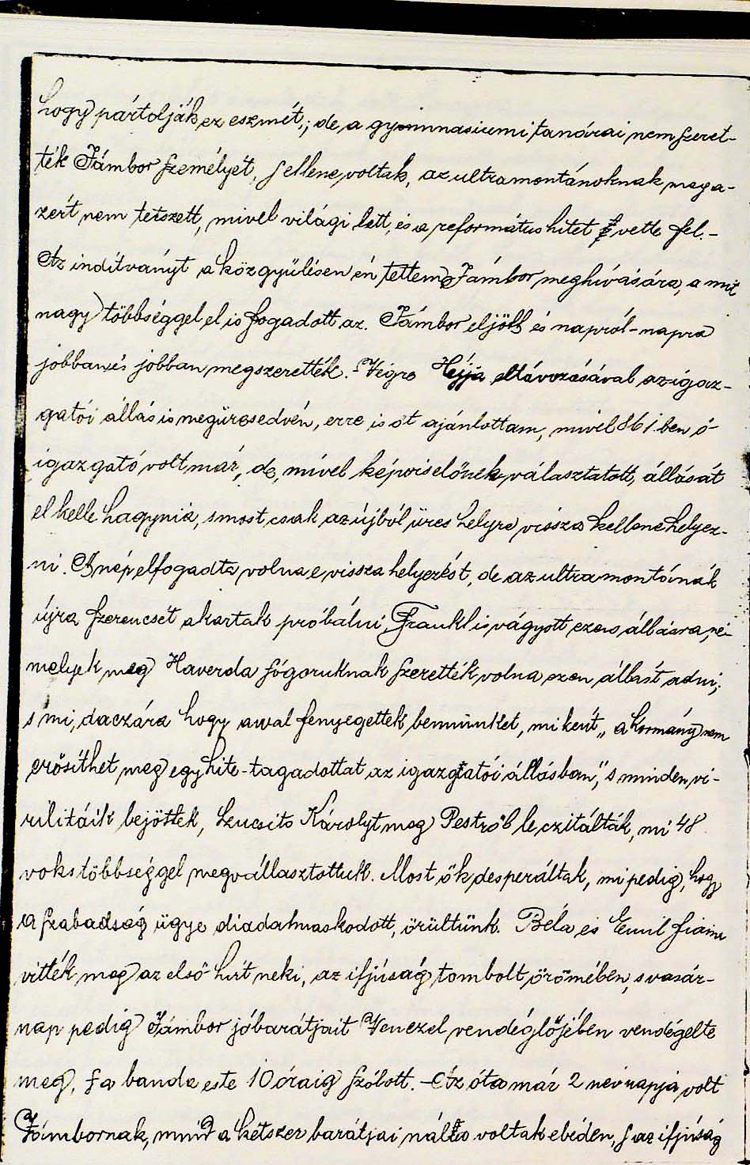 hogy pártolják ez eszmét,; de a gymnnasiumi tanárai nem szeret-
ték Jámbor személyét, s ellene voltak, az ultramontánoknak meg a-
zért nem tetszett, mivel világi lett, és a református hitet vette fel.-
Az indítványt a közgyűlésen én tettem Jámbor meghívására, a mit
nagy többséggel el is fogadott az. Jámbor eljött és napról-napra
jobban és jobban megszerették. - Végre Héjja eltávozásával az igaz-
gatói állás is megüresedvén, erre is őt ajánlottam, mivel 861 ben ő
igazgató volt már, de, mivel képviselőnek választatott, állását
el kelle hagynia, s most csak az újból üres helyre vissza kellene helyez-
ni. A nép elfogadta volna e vissza helyezést, de az ultramontánok
újra szerencsét akartak próbálni Frankl is vágyott ezen állásra, né-
melyek meg Haverda sógoruknak szerették volna ezen állást adni,
s mi, daczára hogy avval fenyegettek bennünket, miként „a kormány nem
erősíthet meg egy hite-tagadottat az igazgatói állásban," s minden vi-
rilitáik bejöttek, Lucsits Károlyt meg Pestről le czitálták, mi 48
voks többséggel megválasztottuk. Most ők desperáltak, mi pedig, hogy
a szabadság ügye diadalmaskodott, örültünk. Béla és Emil fiaim
vitték meg az első hírt neki, az ifjúság tombolt örömében, s vasár-
nap pedig Jámbor jóbarátjait Venczel vendéglőjében vendégelte
meg, s a banda este 10 óráig szólott. - Az óta már 2 névnapja volt
Jámbornak, mind a kétszer barátjai nála voltak ebéden, s az ifjúság